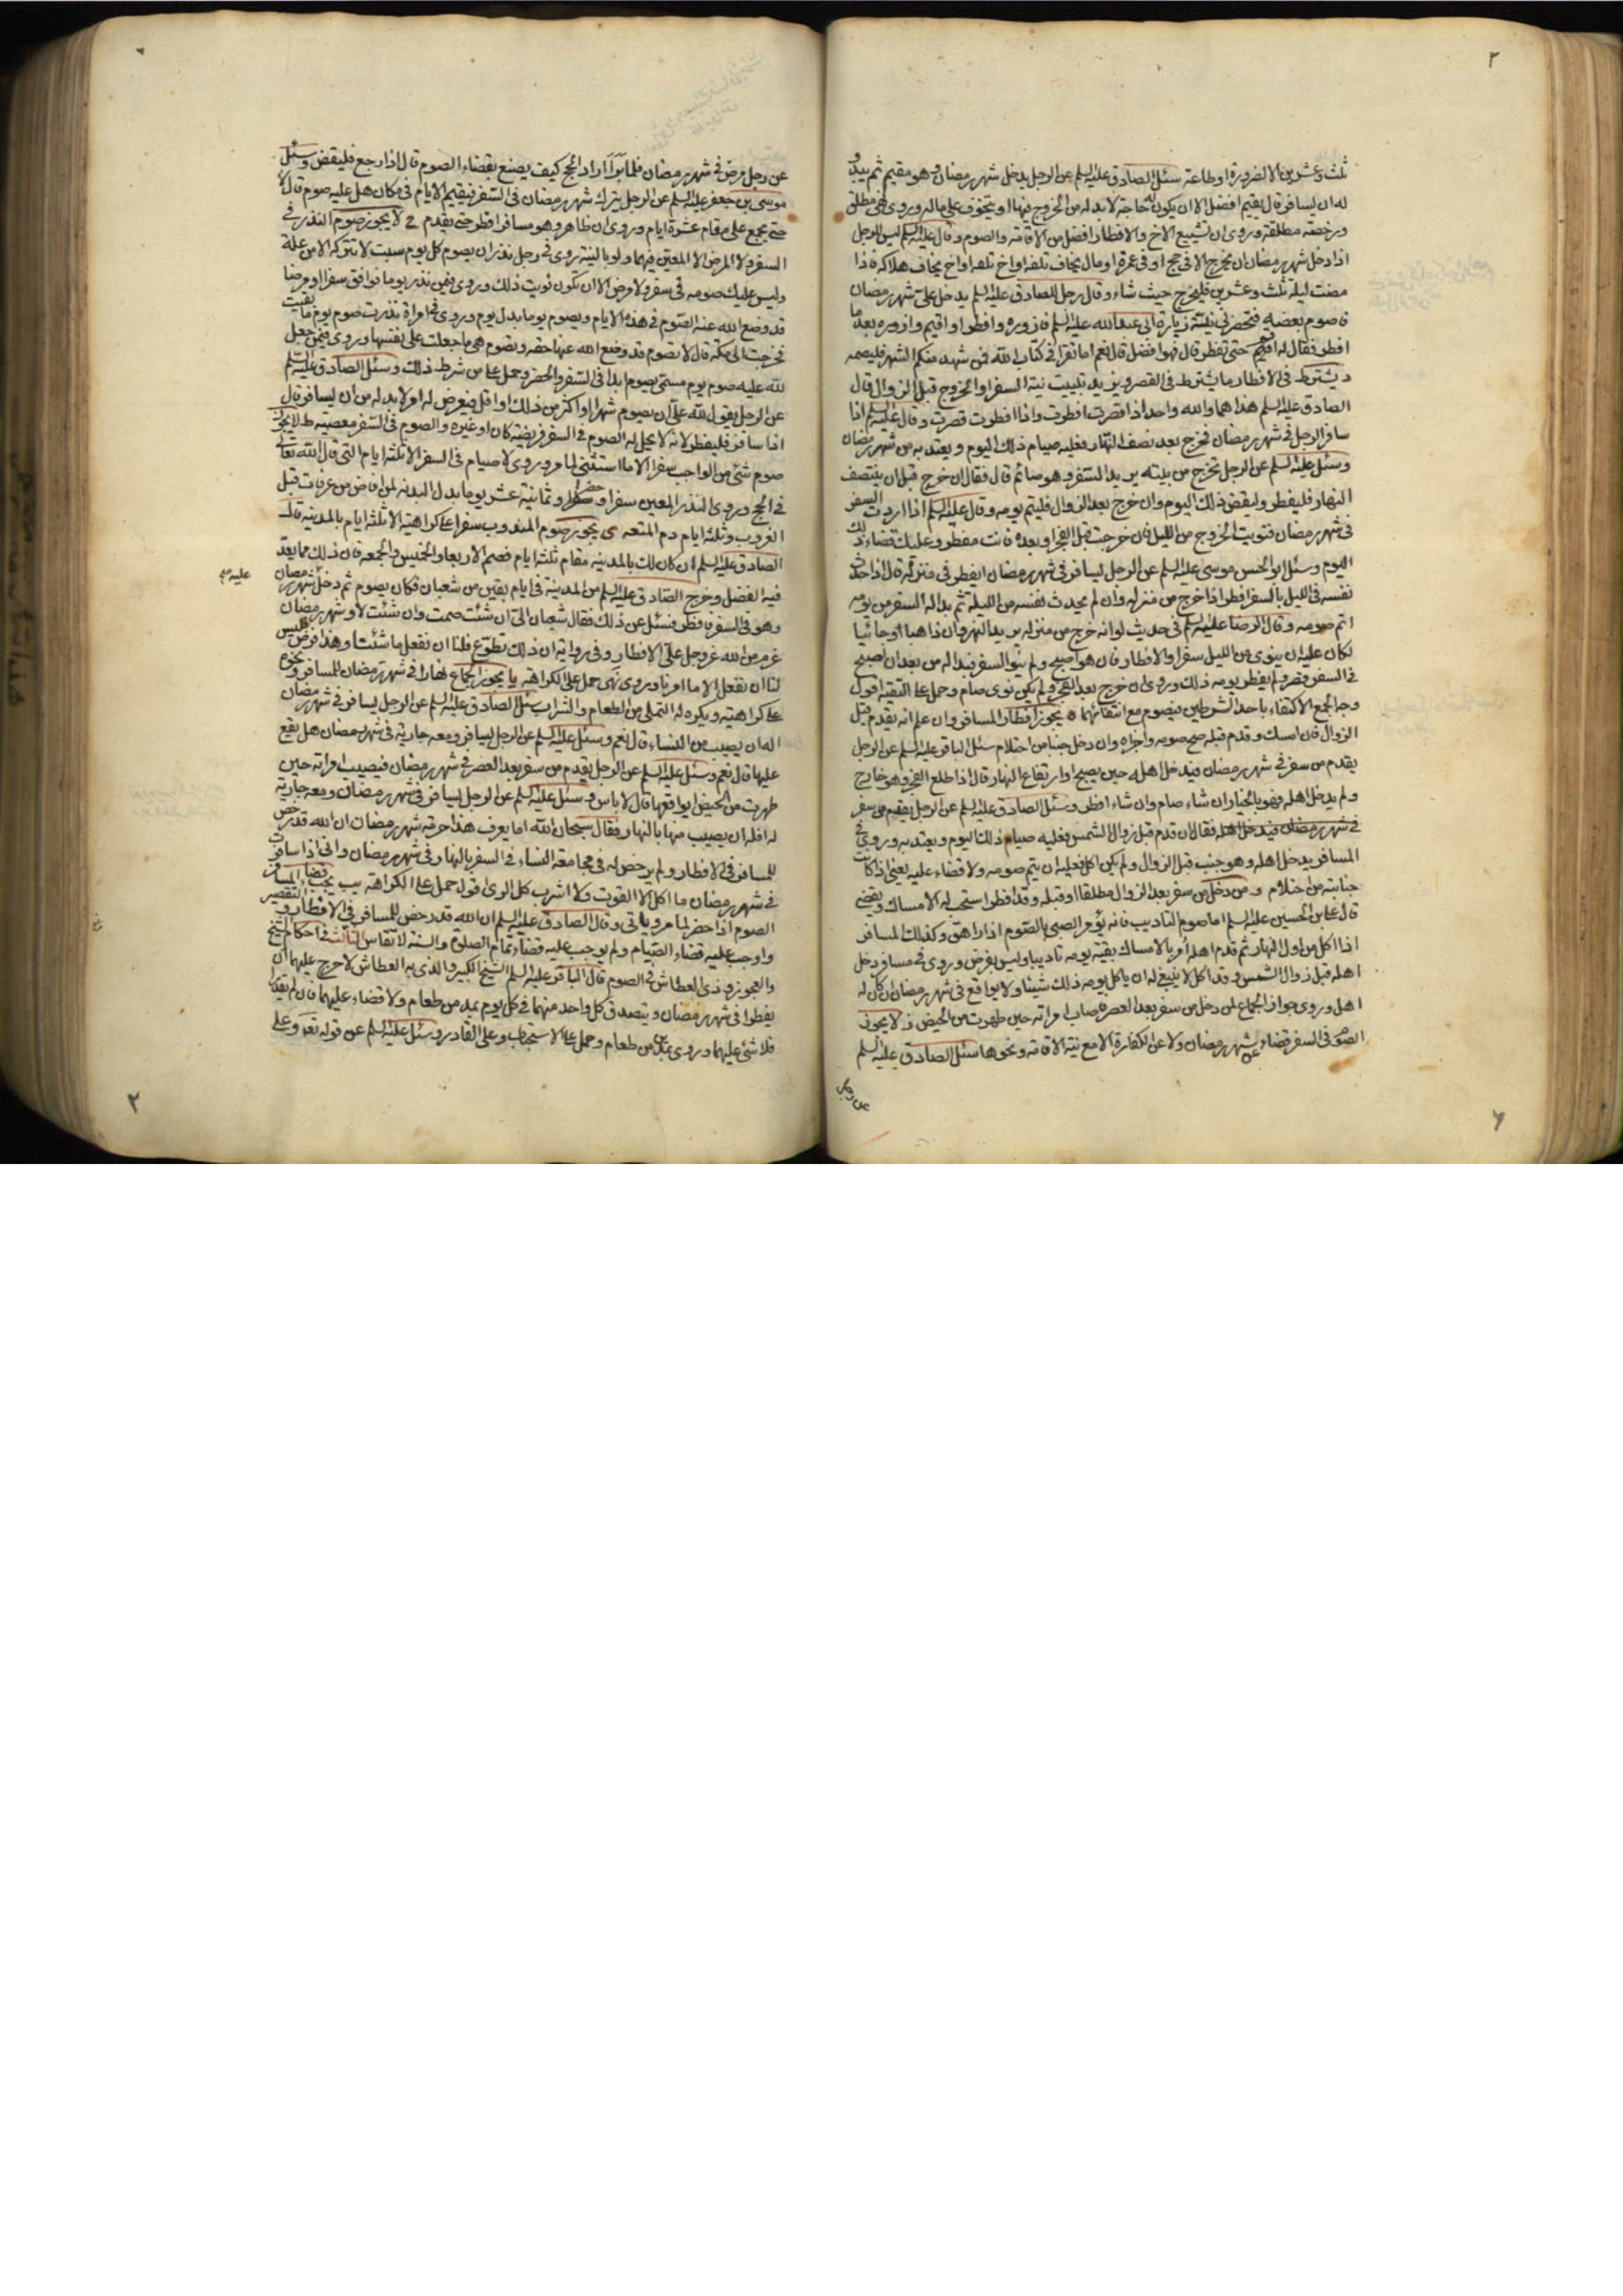 ٢
ثلث وعشرين الا لضرورة او طاعة سئل الصادق عليه السلم عن الرجل يدخل شهر رمضان وهو مقيم ثم يبدو
له ان يسافر قال يقيم افضل الا ان يكون له حاجة لا بد له من الخروج فيها او يتخوف على ماله وروى نهى مطلق
ورخصة مطلقة وروى ان تشييع الاخ والافطار افضل من الاقامة والصوم وقال عليه السلم ليس للرجل
اذا دخل شهر رمضان ان يخرج الا في حج او في عمرة او مال يخاف تلفه او اخ يخاف هلاكه فاذا
مضت ليلة ثلث وعشرين فليخرج حيث شاء وقال رجل للصادق عليه السلم يدخل على شهر رمضان
فاصوم بعضه فتحضرني نية زيارة ابي عبد الله عليه السلم فازوره وافطر او اقيم وازوره بعد ما
افطر فقال له اقم حتى تفطر قال فهو افضل قال نعم اما تقرأ في كتاب الله فمن شهد منكم الشهر فليصمه
د يشترط في الافطار ما يشترط في القصر ويزيد تبييت نية السفر او الخروج قبل الزوال قال
الصادق عليه السلم هذا هما والله واحد اذا قصرت افطرت واذا افطرت قصرت وقال عليه السلم اذا
سافر الرجل في شهر رمضان فخرج بعد نصف النهار فعليه صيام ذلك اليوم ويعتد به من شهر رمضان
وسئل عليه السلم عن الرجل يخرج من بيته يريد السفر وهو صائم قال فقال ان خرج قبل ان ينتصف
النهار فليفطر وليقض ذلك اليوم وان خرج بعد الزوال فليتم يومه وقال عليه السلم اذا اردت السفر
في شهر رمضان فنويت الخروج من الليل فان خرجت قبل الفجر او بعده فانت مفطر وعليك قضاء ذلك
اليوم وسئل ابو الحسن موسى عليه السلم عن الرجل يسافر في شهر رمضان ايفطر في منزله قال اذا حدث
نفسه في الليل بالسفر افطر اذا خرج من منزله وان لم يحدث نفسه من الليلة ثم بدا له السفر من يومه
اتم صومه وقال الرضا عليه السلم في حديث لو انه خرج من منزله يريد النهروان ذاهبا او جائيا
لكان عليه ان ينوى من الليل سفرا والافطار فان هو اصبح ولم ينو السفر فبدا له من بعد ان اصبح
في السفر قصر ولم يفطر يومه ذلك وروى ان خرج بعد الفجر ولم يكن نوى صام وحمل على التقية اقول
وجه الجمع الاكتفاء باحد الشرطين فيصوم مع انتفائهما ه يجوز افطار المسافر وان علم انه يقدم قبل
الزوال فان امسك وقدم قبله صح صومه واجزاه وان دخل جنبا من احتلام سئل الباقر عليه السلم عن الرجل
يقدم من سفر في شهر رمضان فيدخل اهله حين يصبح او ارتفاع النهار قال اذا طلع الفجر وهو خارج
ولم يدخل اهله فهو بالخيار ان شاء صام وان شاء افطر وسئل الصادق عليه السلم عن الرجل يقدم من سفر
في شهر رمضان فيدخل اهله فقال ان قدم قبل زوال الشمس فعليه صيام ذلك اليوم ويعتد به وروى في
المسافر يدخل اهله وهو جنب قبل الزوال ولم يكن اكل فعليه ان يتم صومه ولا قضاء عليه يعنى اذا كانت
جنابته من احتلام و من دخل من سفر بعد الزوال مطلقا او قبله وقد افطر استحب له الامساك ويقضى
قال على بن الحسين عليه السلم اما صوم التاديب فانه يؤمر الصبي بالصوم اذا راهق وكذلك المسافر
اذا اكل من اول النهار ثم قدم اهله امر بالامساك بقية يومه تاديبا وليس بفرض وروى في مسافر دخل
اهله قبل زوال الشمس وقد اكل لا ينبغي له ان ياكل يومه ذلك شيئا ولا يواقع في شهر رمضان ان كان له
اهل وروى جواز الجماع لمن دخل من سفر بعد العصر فاصاب امراته حين طهرت من الحيض ز لا يجوز
الصوم في السفر قضاء عن شهر رمضان ولا عن الكفارة الا مع نية الاقامة ونحوها سئل الصادق عليه السلم
عن رجل
عن رجل مرض في شهر رمضان فلما برأ اراد الحج كيف يصنع بقضاء الصوم قال اذا رجع فليقض وسئل
موسى بن جعفر عليه السلم عن الرجل يترك شهر رمضان في السفر فيقيم الايام في مكان هل عليه صوم قال لا
حتى يجمع على مقام عشرة ايام وروى ان ظاهر وهو مسافر افطر حتى يقدم ح لا يجوز صوم النذر في
السفر ولا المرض الا المعين فيهما ولو بالنية روى في رجل نذر ان يصوم كل يوم سبت لا تتركه الا من علة
وليس عليك صومه في سفر ولا مرض الا ان تكون نويت ذلك وروى فيمن نذر يوما فوافق سفرا او مرضا
قد وضع الله عنه الصوم في هذه الايام ويصوم يوما بدل يوم وروى في امراة نذرت صوم يوم ما بقيت
فخرجت الى مكة قال لا تصوم قد وضع الله عنها حقه وتصوم هي ما جعلت على نفسها وروى فيمن جعل
لله عليه صوم يوم مسمى يصوم ابدا في السفر والحضر وحمل على من شرط ذلك وسئل الصادق عليه السلم
عن الرجل يقول لله على ان يصوم شهرا او اكثر من ذلك او اقل فيعرض له امر لا بد له من ان يسافر قال
اذا سافر فليفطر لانه لا يحل له الصوم في السفر فريضة كان او غيره والصوم في السفر معصية ط لا يجوز
صوم شئ من الواجب سفرا الا ما استثنى لما مر وروى لا صيام في السفر الا ثلثة ايام التي قال الله تعالى
في الحج وروى النذر المعين سفرا وحضرا وثمانية عشر يوما بدل البدنة لمن افاض من عرفات قبل
الغروب وثلثة ايام دم المتعة ى يجوز صوم المندوب سفرا على كراهية الا ثلثة ايام بالمدينة قال
الصادق عليه السلم ان كان لك بالمدينة مقام ثلثة ايام فصم الاربعاء والخميس والجمعة فان ذلك مما يعد
فيه الفضل وخرج الصادق عليه السلم من المدينة في ايام بقين من شعبان فكان يصوم ثم دخل شهر رمضان
وهو في السفر فافطر فسئل عن ذلك فقال شعبان الى ان شئت صمت وان شئت لا وشهر رمضان
عزم من الله عز وجل على الافطار وفي رواية ان ذلك تطوع فلنا ان نفعل ما شئنا وهذا فرض فليس
لنا ان نفعل الا ما امرنا وروى نهى حمل على الكراهة يا يجوز الجماع نهارا في شهر رمضان للمسافر ونحوه
على كراهية ويكره له التملى من الطعام والشراب سئل الصادق عليه السلم عن الرجل يسافر في شهر رمضان
اله ان يصيب من النساء قال نعم وسئل عليه السلم عن الرجل يسافر ومعه جارية في شهر رمضان هل يقع
عليها قال نعم وسئل عليه السلم عن الرجل يقدم من سفر بعد العصر في شهر رمضان فيصيب امراته حين
طهرت من الحيض ايواقعها قال لا باس و سئل عليه السلم عن الرجل يسافر في شهر رمضان ومعه جارية
له افله ان يصيب منها بالنهار فقال سبحان الله اما يعرف هذا حرمة شهر رمضان ان الله قد رخص
للمسافر في الافطار ولم يرخص له في مجامعة النساء في السفر بالنهار في شهر رمضان وانى اذا سافرت
في شهر رمضان ما اكل الا القوت ولا اشرب كل الرى اقول حمل على الكراهة يب يجب قضاء المسافر
الصوم اذا حضر لما مر وياتي وقال الصادق عليه السلم ان الله قد رخص للمسافر في الافطار والتقصير
واوجب عليه قضاء الصيام ولم يوجب عليه قضاء تمام الصلوة والسنة لا تقاس الثالث في احكام الشيخ
والعجوز وذى العطاش في الصوم قال الباقر عليه السلم الشيخ الكبير والذى به العطاش لا حرج عليهما ان
يفطرا في شهر رمضان ويتصدق كل واحد منهما في كل يوم بمد من طعام ولا قضاء عليهما فان لم يقدرا
فلا شئ عليهما وروى بمدين من طعام وحمل على الاستحباب وعلى القادر وسئل عليه السلم عن قوله تع وعلى
٣